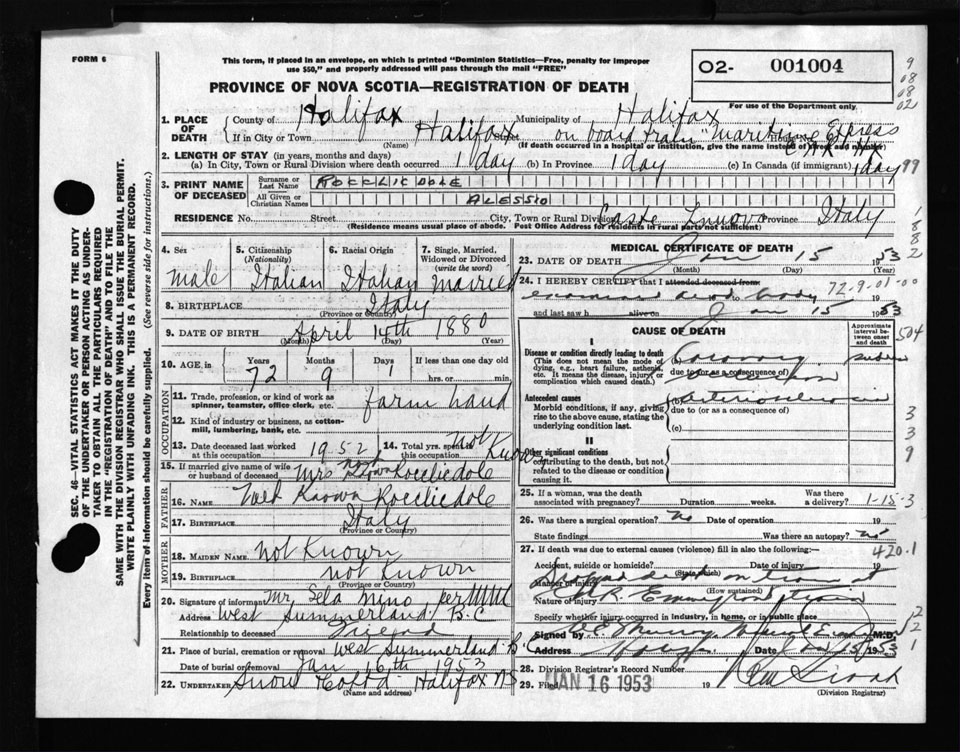 FORM 6
This form, if placed in an envelope, on which is printed "Dominion Statistics—Free, penalty for improper
use $50," and properly addressed will pass through the mail "FREE"
PROVINCE OF NOVA SCOTIA—REGISTRATION OF DEATH
O2- 001004
For use of the Department only.
9
08
08
02
1. PLACE OF DEATH
County of Halifax Municipality of Halifax
If in City or Town Halifax Street on board train "Maritime Express
(Name) (If death occurred in a hospital or institution, give the name instead of street and number)
2. LENGTH OF STAY (in years, months and days)
(a) In City, Town or Rural Division where death occurred 1 day (b) In Province 1 day (c) In Canada (if immigrant) 1 day
99
3. PRINT NAME OF DECEASED
Surname or Last Name ROCCLICDOLE
All Given or Christian Names ALESSIO
RESIDENCE No. Street City, Town or Rural Division Province Italy
(Residence means usual place of abode. Post Office Address for residents in rural parts not sufficient)
1
8
8
2
4. Sex Male
5. Citizenship (Nationality) Italian
6. Racial Origin Italian
7. Single, Married, Widowed or Divorced (write the word) Married
8. BIRTHPLACE Italy
(Province or Country)
9. DATE OF BIRTH April 14th 1880
(Month) (Day) (Year)
10. AGE in Years 72 Months 9 Days 1 If less than one day old
hrs. or min.
OCCUPATION
11. Trade, profession, or kind of work as
spinner, teamster, office clerk, etc. farm hand
12. Kind of industry or business, as cotton-
mill, lumbering, bank, etc.
13. Date deceased last worked at this occupation 1952
14. Total yrs. spent in this occupation Not Known
15. If married give name of wife or husband of deceased Mrs Rocclicdole
FATHER
16. NAME Not Known Rocclicdole
17. BIRTHPLACE Italy
(Province or Country)
MOTHER
18. MAIDEN NAME Not Known
19. BIRTHPLACE not Known
(Province or Country)
20. Signature of informant Mr. Nino per
Address West Summerland B.C
Relationship to deceased Friend
21. Place of burial, cremation or removal West Summerland B.C
Date of burial or removal Jan 16th 1953
22. UNDERTAKER Snow Halifax NS
(Name and address)
MEDICAL CERTIFICATE OF DEATH
23. DATE OF DEATH Jan 15 1953
(Month) (Day) (Year)
24. I HEREBY CERTIFY that I attended deceased from:
72-9-01-00
examined dead to body 19
and last saw h alive on Jan 15 1953
CAUSE OF DEATH
Approximate interval between onset and death
504
I
Disease or condition directly leading to death
(This does not mean the mode of dying, e.g., heart failure, asthenia, etc. It means the disease, injury or complication which caused death.)
(a) Coronary
due to (or as a consequence of) occlusion
Antecedent causes
Morbid conditions, if any, giving rise to the above cause, stating the underlying condition last.
(b)
due to (or as a consequence of)
(c)
3
3
9
II
Other significant conditions
contributing to the death, but not related to the disease or condition causing it.
25. If a woman, was the death associated with pregnancy? Duration weeks. Was there a delivery?
1-15-3
26. Was there a surgical operation? No Date of operation 19
State findings Was there an autopsy? no
27. If death was due to external causes (violence) fill in also the following:—
420.1
Accident, suicide or homicide? Date of injury 19
(State which)
Manner of injury on train at
(How sustained)
Nature of injury train
Specify whether injury occurred in industry, in home, or in public place
Signed by M.D.
Address Date Jan 15 1953
2
2
1
28. Division Registrar's Record Number
29. Filed JAN 16 1953 19
(Division Registrar)
SEC. 46—VITAL STATISTICS ACT MAKES IT THE DUTY
OF THE UNDERTAKER OR PERSON ACTING AS UNDER-
TAKER TO OBTAIN ALL THE PARTICULARS REQUIRED
IN THE "REGISTRATION OF DEATH" AND TO FILE THE
SAME WITH THE DIVISION REGISTRAR WHO SHALL ISSUE THE BURIAL PERMIT.
WRITE PLAINLY WITH UNFADING INK. THIS IS A PERMANENT RECORD.
Every item of information should be carefully supplied. (See reverse side for instructions.)